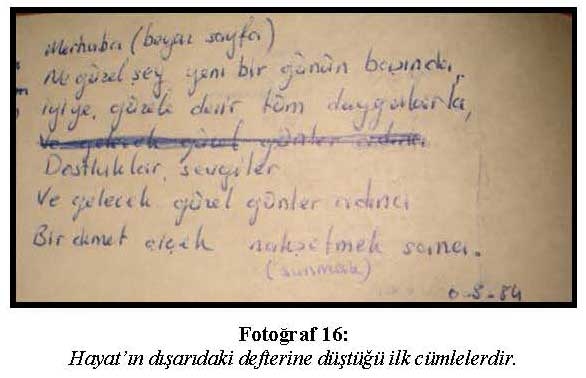 Merhaba (beyaz sayfa)
Ne güzel şey yeni bir günün başında,
iyiye, güzele dair tüm duygularla,
ve gelecek güzel günler adına
Dostluklar, sevgiler
Ve gelecek güzel günler adına
Bir demet çiçek nakşetmek sana.
(sunmak)
-8-84
Fotoğraf 16:
Hayat’ın dışarıdaki defterine düştüğü ilk cümlelerdir.